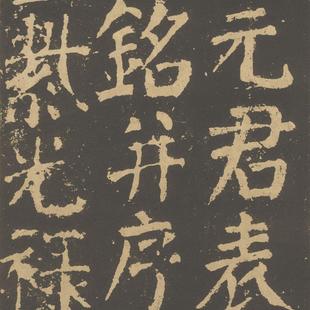 元君表
銘并序
紫光祿